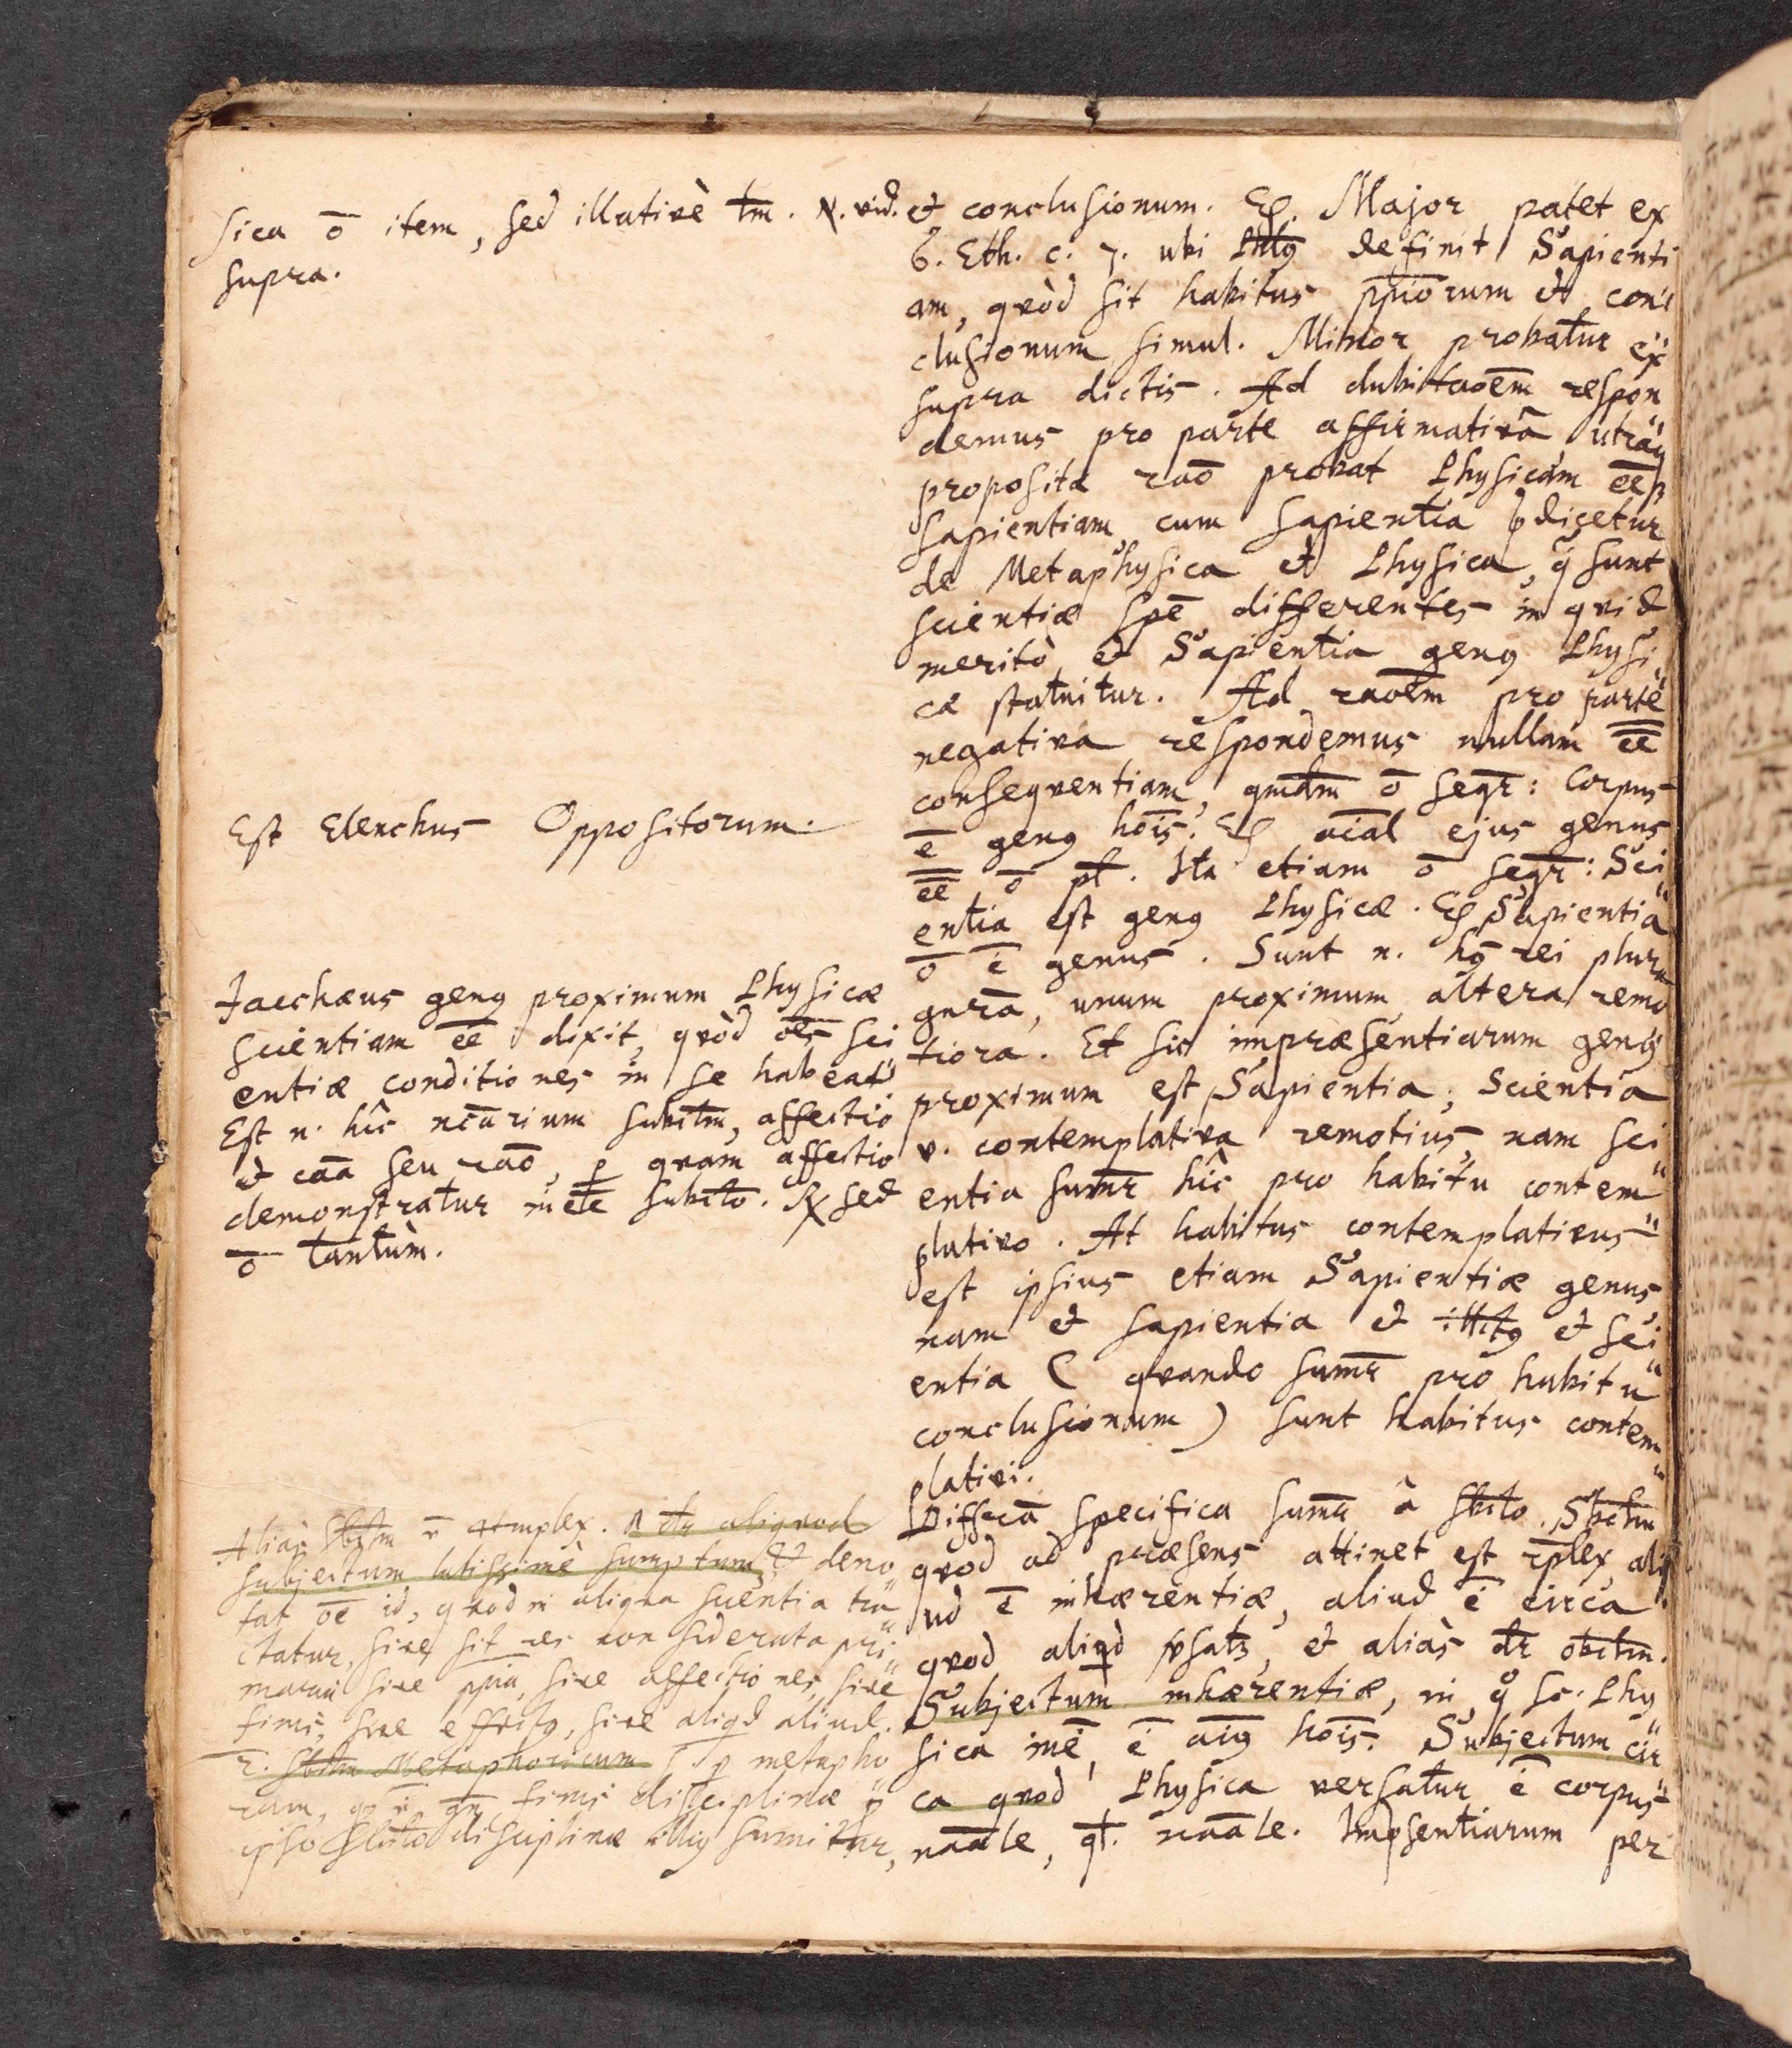 sica ō item, sed illativè tm̄. N. vid.
supra.
Est Elenchus Oppositorum.
Jacchæus geng proximum Physicæ
scientiam ēē dixit, qvòd oēs sci
entiæ conditiones in se habeat
Est n. hîc nc̄arium subctm̄, affectio
et caā seu raō, p qvam affectio
demonstratur in subcto. sed
ō tantùm.
Aliàs sbctm ē
subjectum latissimè sumptum, & deno
tat oē id, qvod in aliqva scientia tra
ctatur, sive sit res considerata pri
maria sive ppia, sive affectiones, sive
finis, sive effectg, sive aliqd aliud.
2. sbctm Metaphoricum p metapho
ram, finis disciplinæ
ipso disciplinæ illig sumitur,
et conclusionum. Eg. Major patet ex
6. Eth. c. 7. ubi Phlg definit Sapienti
am, qvòd sit habitus ppiorum et con
clusionum simul. Minor probatur ex
supra dictis. Ad dubitaoēm respon
demus pro parte affirmativâ utraq
proposita raō probat Physicam ēē
sapientiam, cum sapientia pdicetur
de Metaphysica et Physica, q̄ sunt
scientiæ spē differentes in qvid
meritò et Sapientia geng Physi
cæ statuitur. Ad raoēm pro parte
negativa respondemus nullam ēē
conseqventiam, qmdm̄ ō seqr̄: Corpus
ē geng hoīs. Eg aīal ejus genus
ēē ō pt̄. Ita etiam ō seqr̄: Sci
entia est geng Physicæ. Eg Sapientia
ō ē genus. Sunt n. hg rei plura
gnra, unum proximum altera remo
tiora. Et sic impræsentiarum geng
proximum est Sapientia; Scientia
v. contemplativa remotius, nam sci
entia sumr̄ hîc pro habitu contem
plativo. At habitus contemplativus
est ipsius etiam Sapientiæ genus
nam et sapientia et et sci
entia (qvando sumr̄ pro habitu
conclusionum) sunt habitus contem
plativi.
Differā specifica sumr̄ â sbcto. Sbctm
qvod ad præsens attinet est āplex, ali
ud ē inhærentiæ, aliud ē circa
qvod aliqd vsatr, et aliàs dr̄ obctm.
Subjectum inhærentiæ, in q̊ sc. Phy
sica inē, ē aīg hoīs. Subjectum cir
ca qvod Physica versatur ē corpus
naāle, qt. naāle. Impsentiarum per